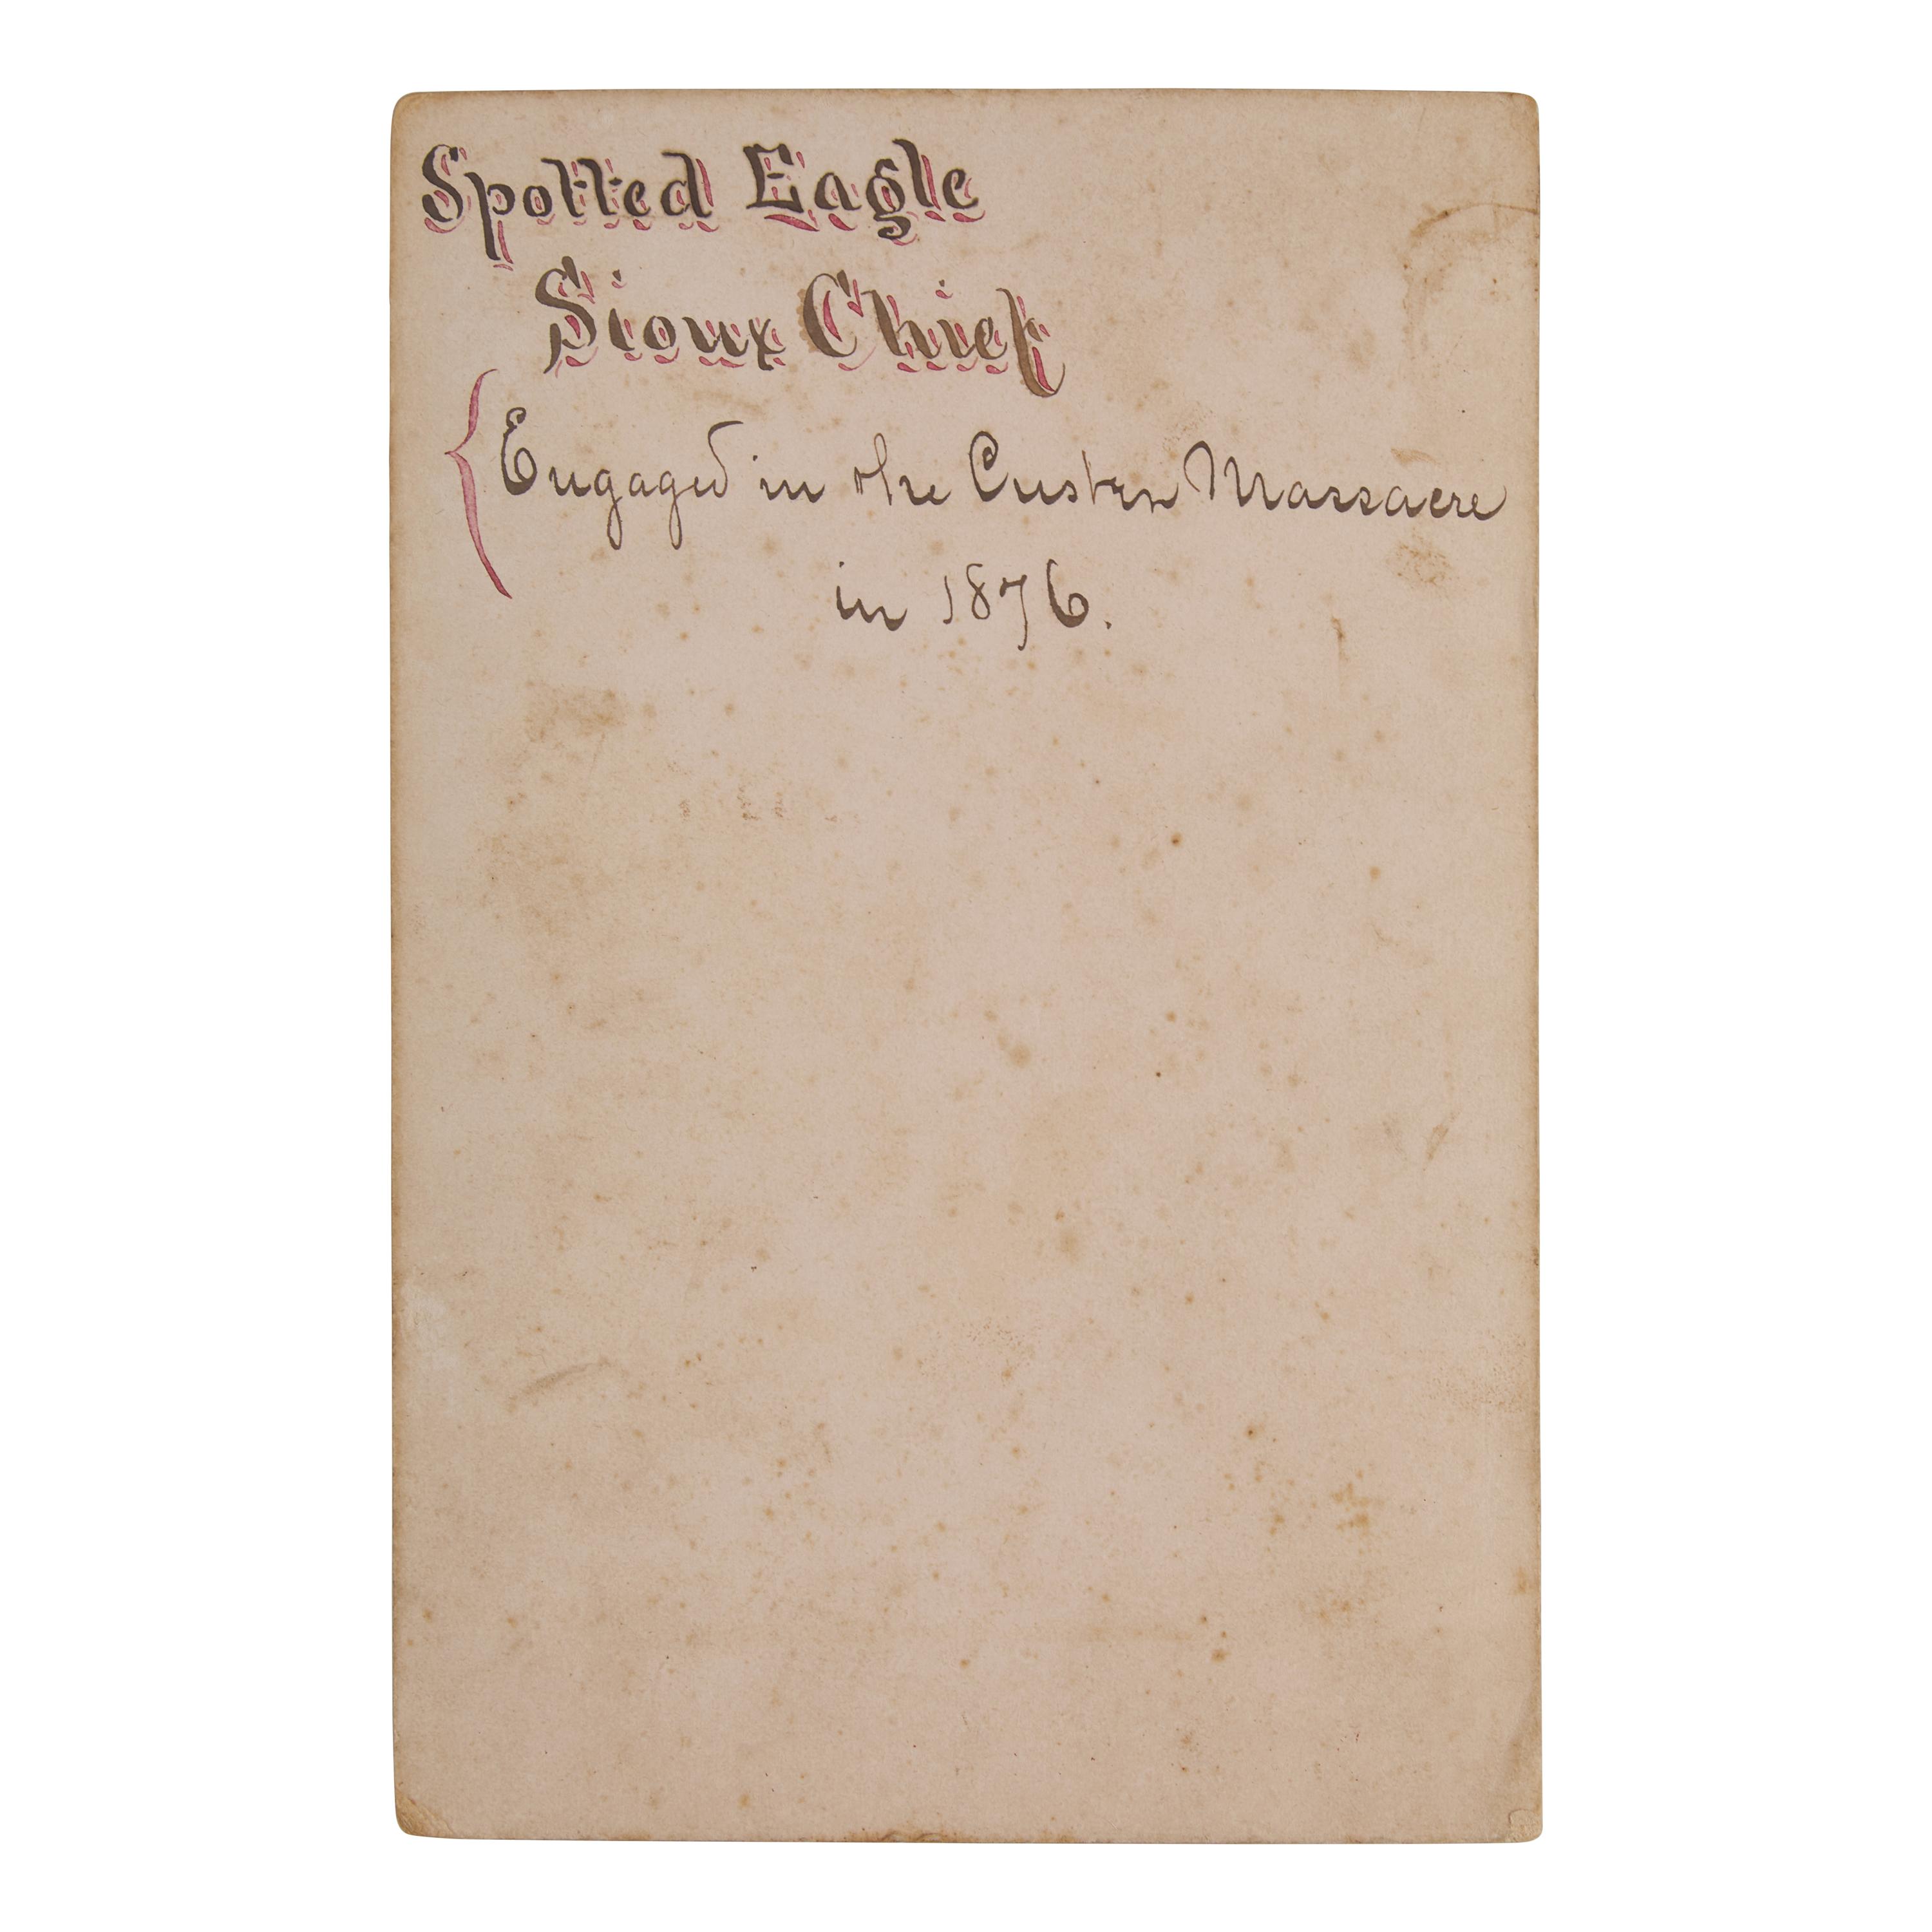 Spotted Eagle
Sioux Chief
Engaged in the Custer Massacre
in 1876.